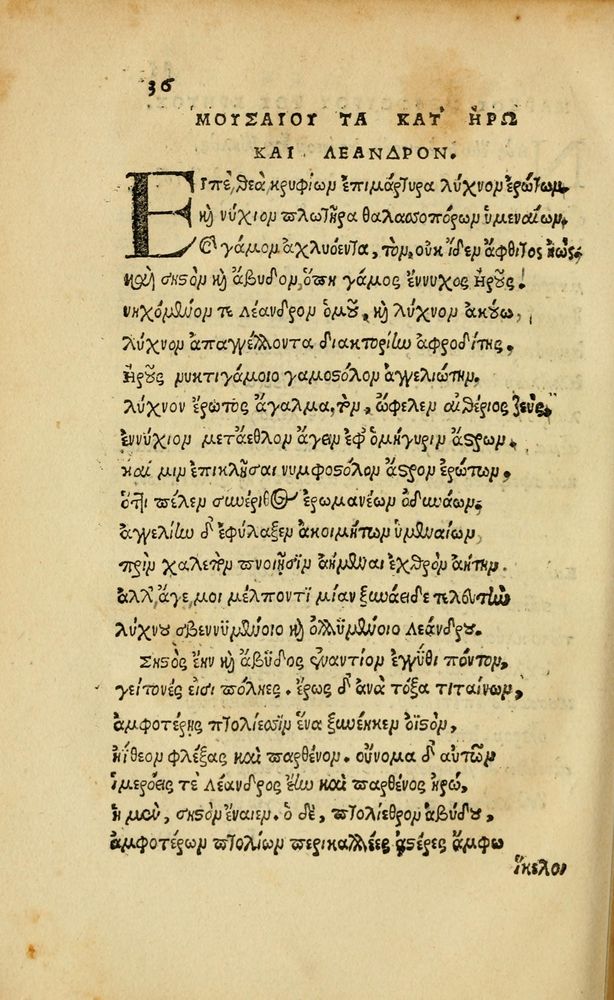 36
ΜΟΥΣΑΙΟΥ ΤΑ ΚΑΤ' ΗΡΩ
ΚΑΙ ΛΕΑΝΔΡΟΝ.
ΕΙπὲ, θεὰ, κρυφίων ἐπιμάρτυρα λύχνον ἐρώτων,
καὶ νύχιον πλωτῆρα θαλασσοπόρων ὑμεναίων,
καὶ γάμον ἀχλυόεντα, τὸν, οὐκ ἴδεν ἄφθιτος ἠώς,
καὶ σηστὸν καὶ ἄβυδον, ὅπη γάμος ἔννυχος Ἡροῦς.
νηχόμενόν τε λέανδρον ὁμοῦ, καὶ λύχνον ἀκούω,
λύχνον ἀπαγγέλλοντα διακτορίην ἀφροδίτης,
Ἡροῦς νυκτιγάμοιο γαμοστόλον ἀγγελιώτην.
λύχνον ἔρωτος ἄγαλμα, τὸν, ὤφελεν αἰθέριος ζεύς,
ἐννύχιον μετάεθλον ἄγειν ἐφ' ὁμήγυριν ἄστρων,
καί μιν ἐπικλῆσαι νυμφοστόλον ἄστρον ἐρώτων,
ὅττι πέλεν συνέριθος ἐρωμανέων ὀδυνάων,
ἀγγελίην δ' ἐφύλαξεν ἀκοιμήτων ὑμεναίων,
πρὶν χαλεπὸν πνοιῇσιν ἀήμεναι ἐχθρὸν ἀήτην.
ἀλλ' ἄγε, μοι μέλποντι μίαν ξυνάειδε τελευτὴν
λύχνου σβεννυμένοιο καὶ ὀλλυμένοιο λεάνδρου.
Σηστὸς ἔην καὶ ἄβυδος ἐναντίον ἐγγύθι πόντου,
γείτονές εἰσι πόληες. ἔρως δ' ἀνὰ τόξα τιταίνων,
ἀμφοτέρῃς πτολίεσσιν ἕνα ξυνέηκεν ὀϊστὸν,
ἠΐθεον φλέξας καὶ παρθένον. οὔνομα δ' αὐτῶν
ἱμερόεις τὲ λέανδρος ἔην καὶ παρθένος ἡρώ,
ἡ μὲν, σηστὸν ἔναιεν. ὁ δὲ, πτολίεθρον ἀβύδου,
ἀμφοτέρων πτολίων περικαλλέες ἀστέρες ἄμφω
ἴκελοι